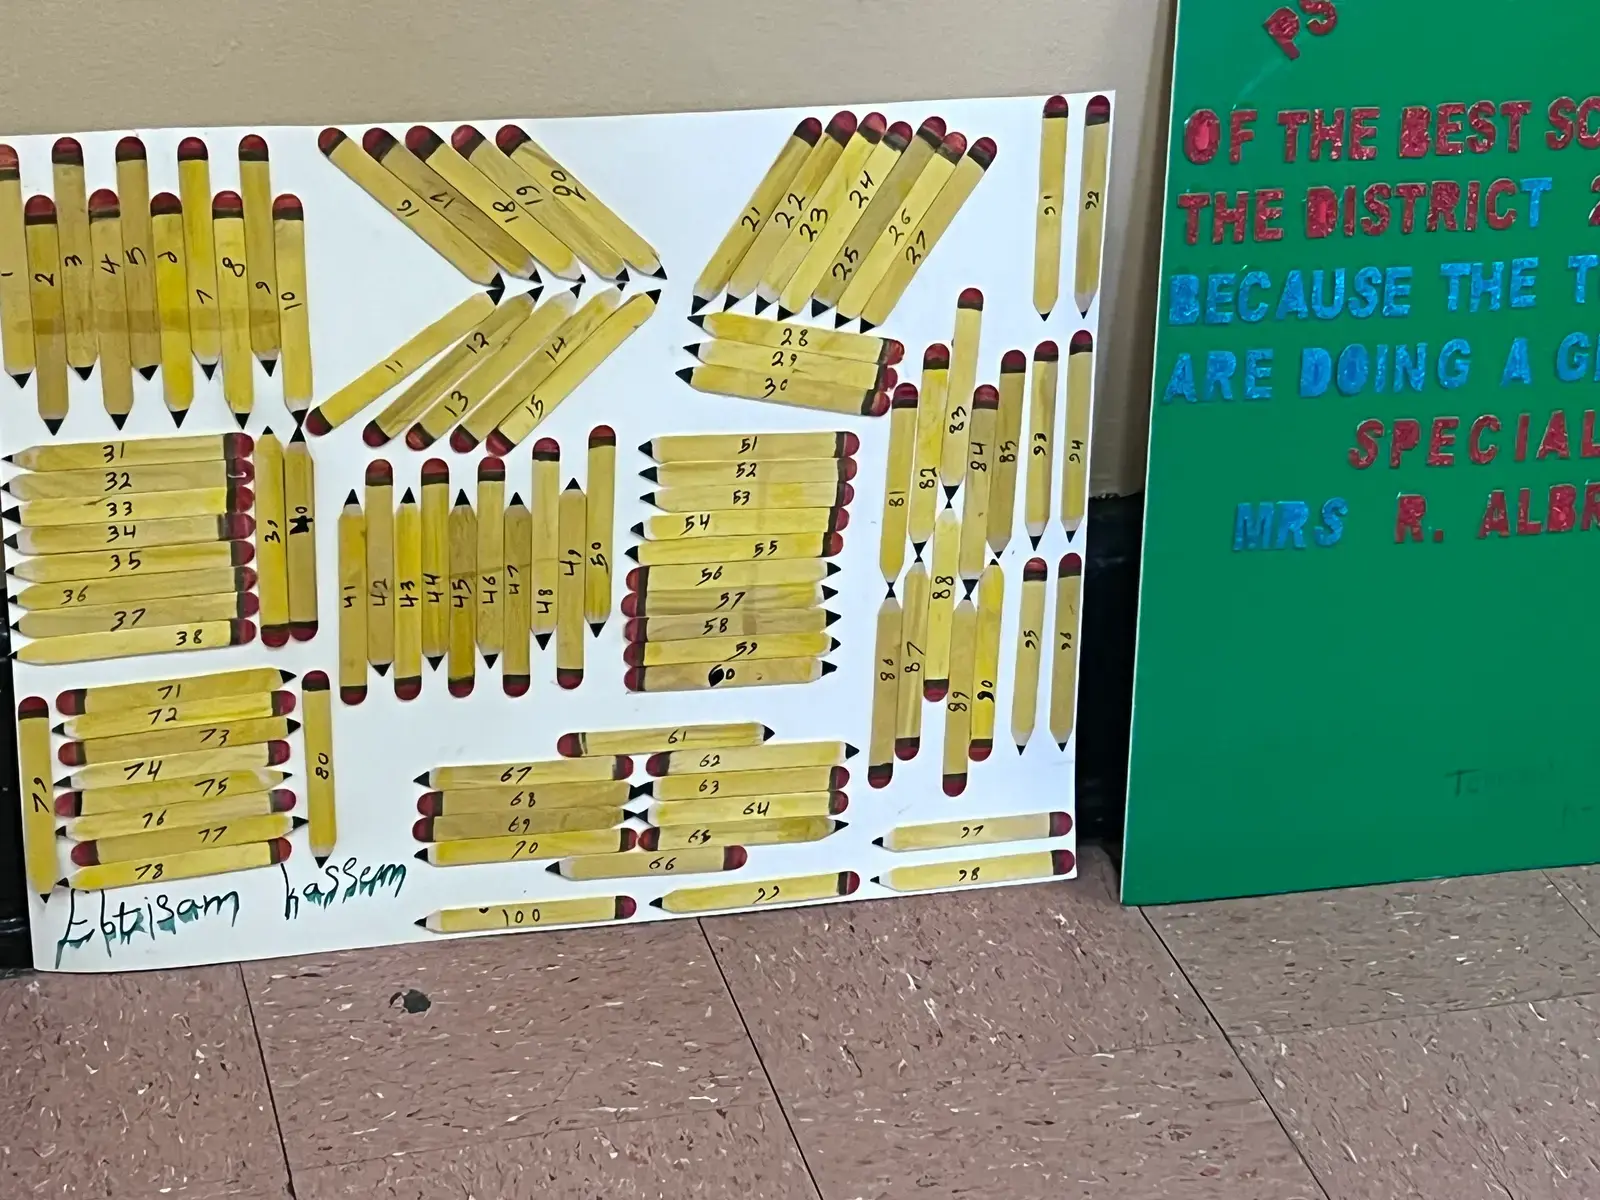 1 2 3 4 5 6 7 8 9 10
16 17 18 19 20
11 12 13 14 15
21 22 23 24 25 26 27
28
29
30
91 92
31
32
33
34
35
36
37
38
39 40
41 42 43 44 45 46 47 48 49 50
51
52
53
54
55
56
57
58
59
60
81 82 83 84 85 93 94
86 87 88 89 90 95 96
71
72
73
74
75
76
77
78
79 80
61
62
63
64
65
66
67
68
69
70
97
98
99
100
Ebtisam kassem
PS
OF THE BEST SC
THE DISTRICT 2
BECAUSE THE T
ARE DOING A G
SPECIAL
MRS R. ALBR